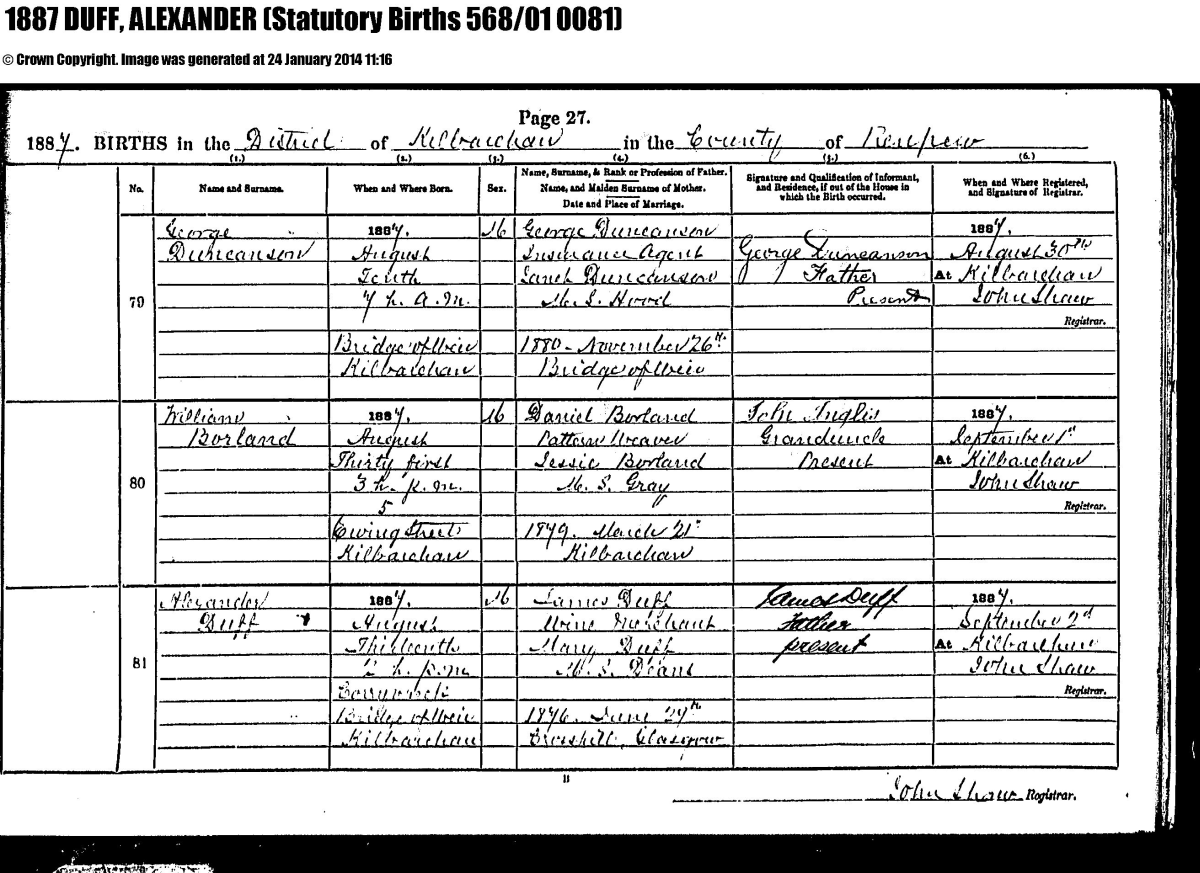 1887 DUFF, ALEXANDER (Statutory Births 568/01 0081)
© Crown Copyright. Image was generated at 24 January 2014 11:16
Page 27.
1887. BIRTHS in the District of Kilbarchan in the County of Renfrew
(1.) (2.) (3.) (4.) (5.) (6.)
No.
Name and Surname.
When and Where Born.
Sex.
Name, Surname, & Rank or Profession of Father.
Name, and Maiden Surname of Mother.
Date and Place of Marriage.
Signature and Qualification of Informant,
and Residence, if out of the House in
which the Birth occurred.
When and Where Registered,
and Signature of Registrar.
79
George
Duncanson
1887.
August
Tenth
7 h. A.M.
Bridge of Weir
Kilbarchan
M
George Duncanson
Insurance Agent
Janet Duncanson
M.S. Hood
1880 - November 26th
Bridge of Weir
George Duncanson
Father
Present
1887.
August 30th
At Kilbarchan
John Shaw
Registrar.
80
William
Borland
1887.
August
Thirty first
3 h. p.m.
5
Ewing Street
Kilbarchan
M
Daniel Borland
Pattern Weaver
Jessie Borland
M.S. Gray
1879. March 21st
Kilbarchan
John Inglis
Granduncle
Present
1887.
September 1st
At Kilbarchan
John Shaw
Registrar.
81
Alexander
Duff
1887.
August
Thirteenth
h. p.m.
Bridge of Weir
Kilbarchan
M
James Duff
Wine Merchant
Mary Duff
M.S. Deans
1876. June 29th
Crosshill, Glasgow
James Duff
Father
present
1887.
September 2d
At Kilbarchan
John Shaw
Registrar.
11
John Shaw Registrar.